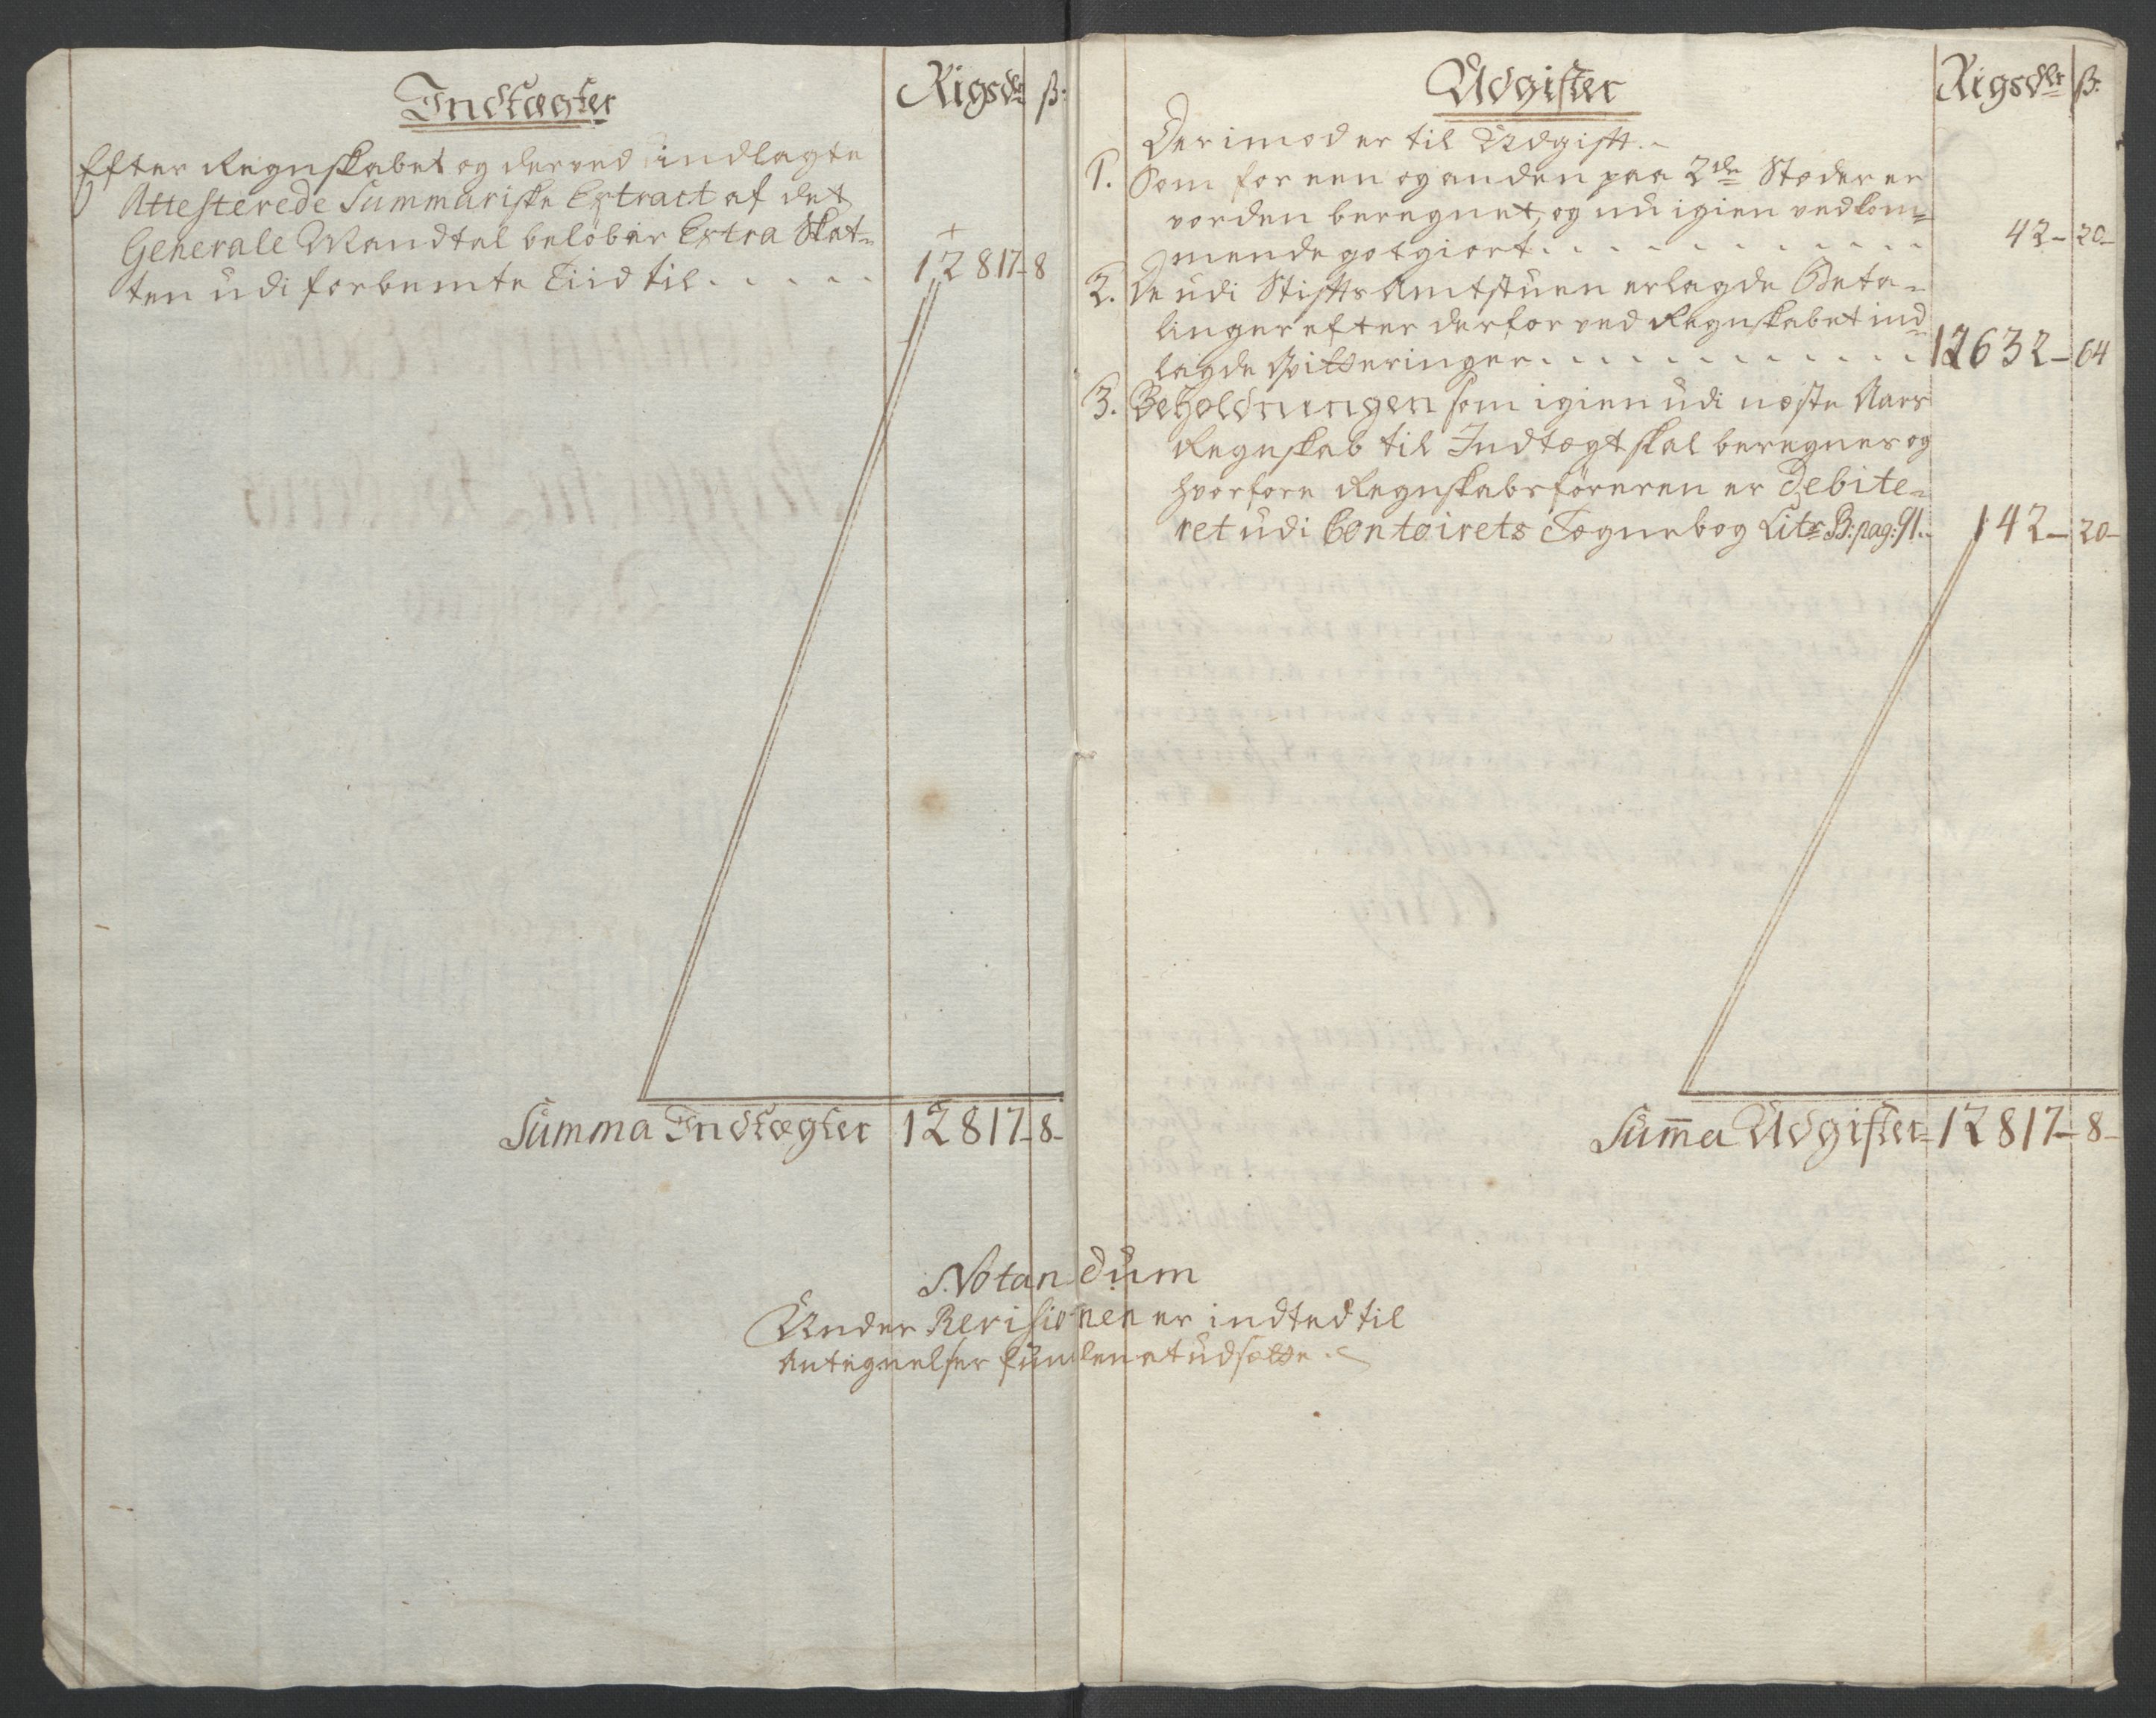 Indtægter
Rigsdr ß:
Efter Regnskabet og derved indlagte
Attesterede Summariske Extract af det
Generale Mandtal beløber Extra Skat=
ten udi forbemte Tiid til . . . . . 12817 - 8
Summa Indtægter 12817 - 8 -
Udgifter
Rigsdlr ß:
Derimod er til Udgift.
1. Som for een og anden paa 2de Stæder er
vorden beregnet, og nu igien vedkom=
mende gotgiort . . . . . . . . . . 42 - 20 -
2. De udi Stifts Amtstuen erlagde Beta=
linger efter derfor ved Regnskabet ind=
lagde Qvitteringer . . . . . . . . . . 12632 - 64
3. Beholdningen som igien udi næste Aars
Regnskab til Indtægt skal beregnes og
hvorfore Regnskabsføreren er Debite=
ret udi Contoirets Tegnebog Litr B: pag: 91. 142 - 20 -
Summa Udgifter 12817 - 8 -
Notandum
Under Revisionen er indted til
Antegnelser funden at udsætte.